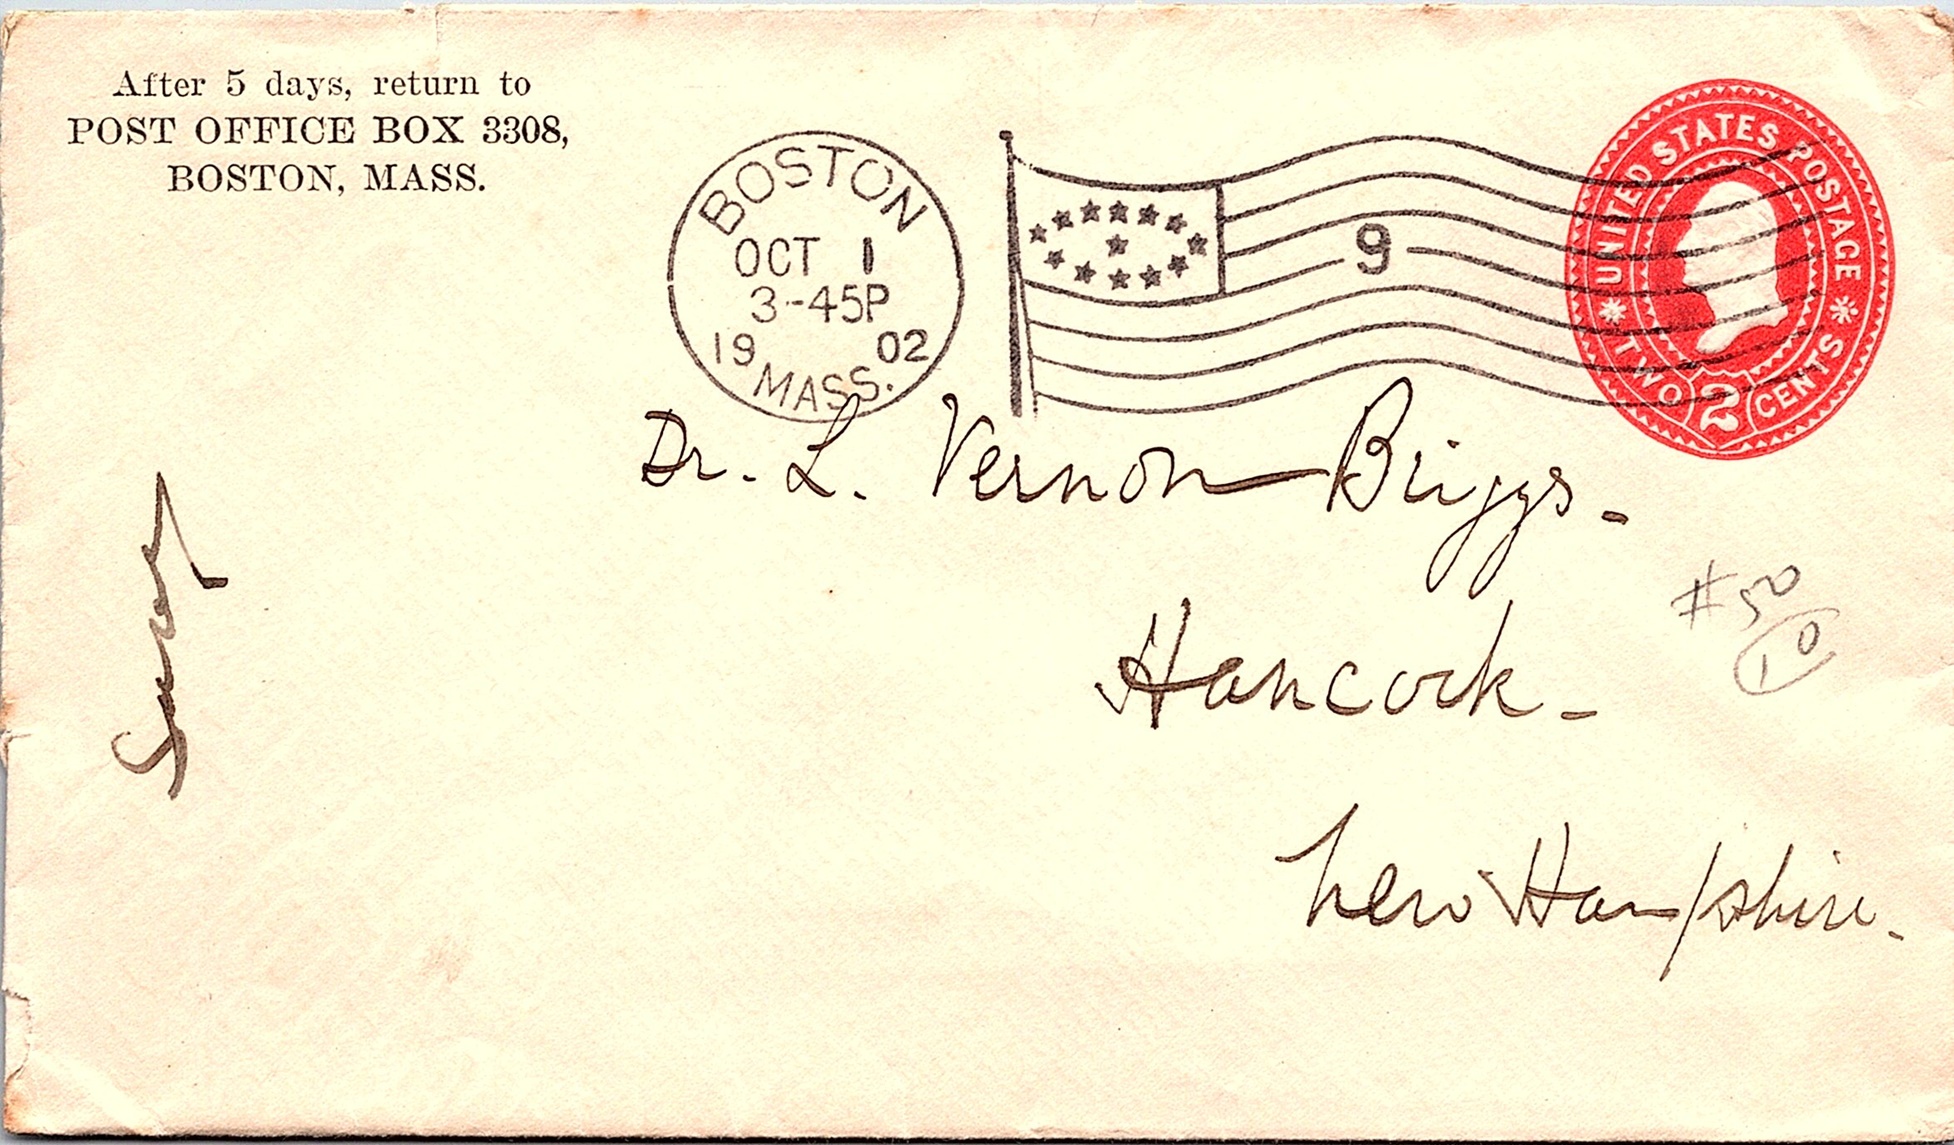 After 5 days, return to
POST OFFICE BOX 3308,
BOSTON, MASS.
BOSTON
OCT 1
3-45P
1902
MASS.
9
UNITED STATES POSTAGE
TWO 2 CENTS
Dr. L. Vernon Briggs.
Hancock.
New Hampshire.
#50
10